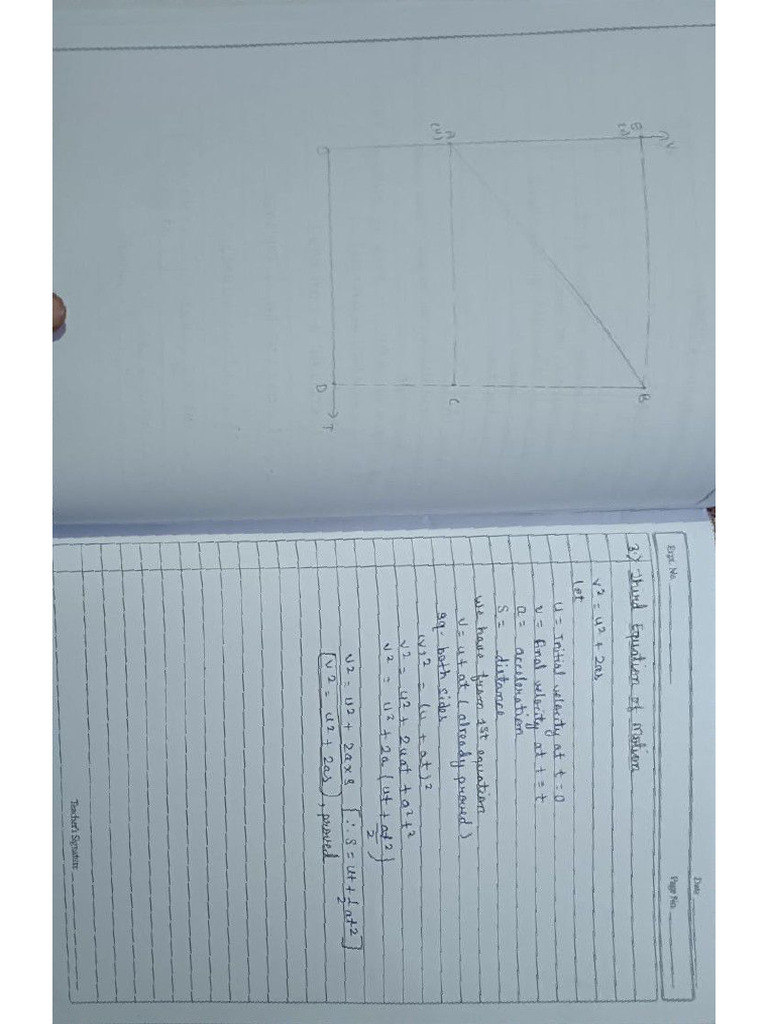 E
(v)
V
B
A
(u)
C
O
D
T
Expt. No.
Date
Page No.
3.) Third Equation of Motion
v² = u² + 2as
let
u = Initial velocity at t = 0
v = Final velocity at t = t
a = acceleration
s = distance
We have from 1st equation
v = u + at (already proved)
sq. both sides
(v)² = (u + at)²
v² = u² + 2uat + a²t²
v² = u² + 2a (ut + at²/2)
v² = u² + 2a×s [∴ s = ut + 1/2 at²]
[v² = u² + 2as], proved
Teacher's Signature